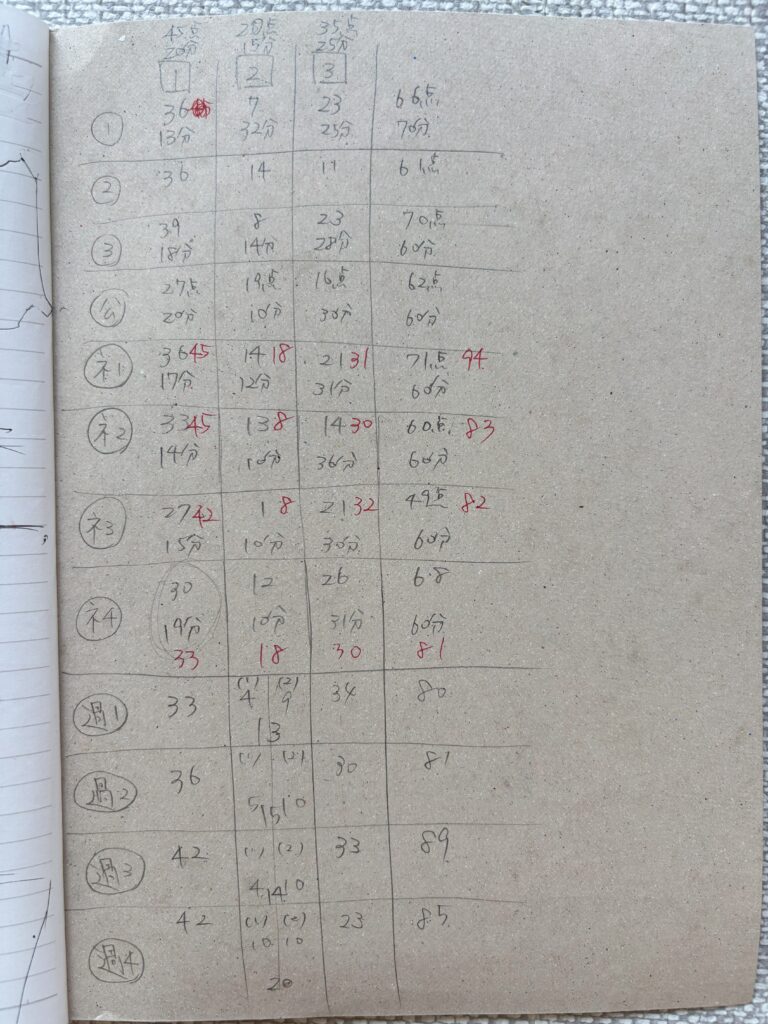 45点 20点 35点
20分 15分 25分
1 2 3
① 36 7 23 66点
13分 32分 25分 70分
② 36 14 11 61点
③ 39 8 23 70点
18分 14分 28分 60分
公 27点 19点 16点 62点
20分 10分 30分 60分
ネ1 36 45 14 18 21 31 71点 94
17分 12分 31分 60分
ネ2 33 45 13 8 14 30 60点 83
14分 10分 36分 60分
ネ3 27 42 1 8 21 32 49点 82
15分 10分 30分 60分
ネ4 30 12 26 68
19分 10分 31分 60分
33 18 30 81
過1 33 (1) (2) 34 80
4 9
13
過2 36 (1) (2) 30 81
5 15 10
過3 42 (1) (2) 33 89
4 14 10
過4 42 (1) (2) 23 85
10 10
20